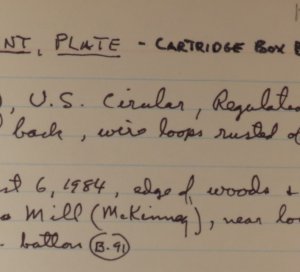 NT, PLATE - CARTRIDGE BOX
), U.S. Circular, Regulatio
back, wire loops rusted o
st 6, 1984, edge of woods
Mill (McKinney), near lo
button B-91